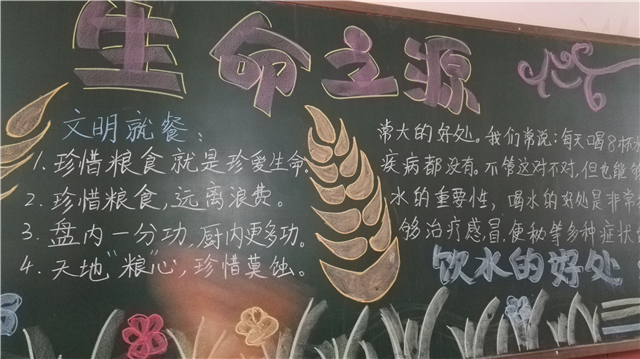 生命之源
文明就餐：
1.珍惜粮食就是珍爱生命。
2.珍惜粮食,远离浪费。
3.盘内一分功,厨内更多功。
4.天地“粮”心,珍惜莫蚀。
常大的好处。我们常说：每天喝8杯水
疾病都没有。不管这对不对,但也能够
水的重要性，喝水的好处是非常
够治疗感冒,便秘等多种症状
饮水的好处